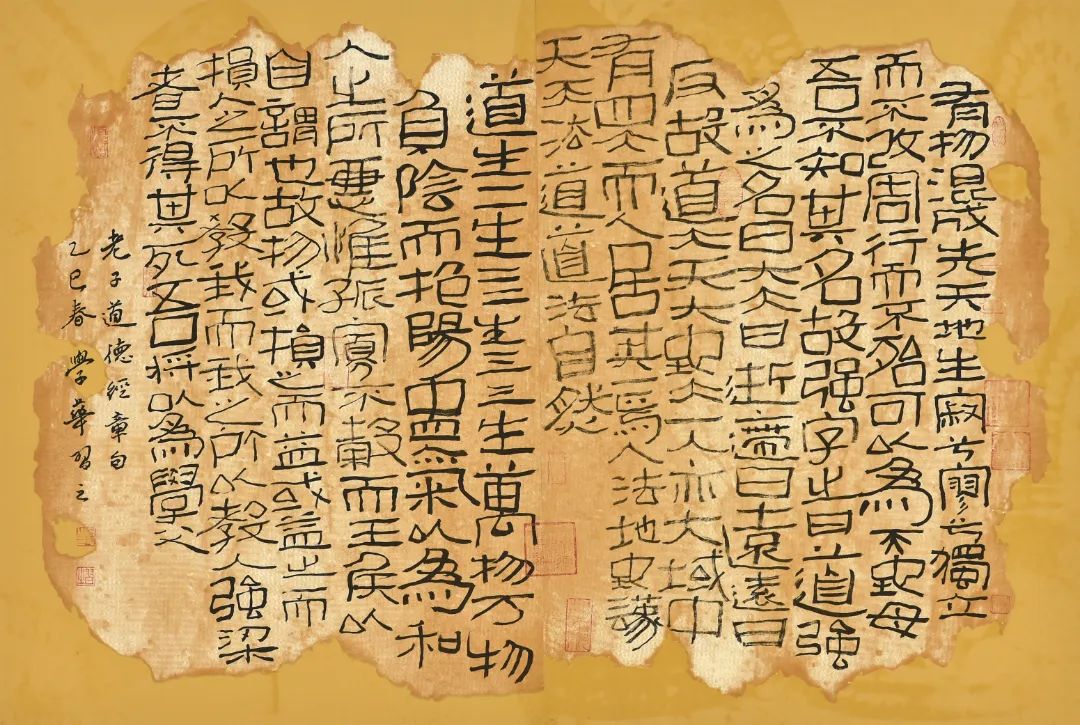 有物混成先天地生寂兮寥兮獨立
而不改周行而不殆可以為天地母
吾不知其名故强字之曰道强
為之名曰大大曰逝逝曰遠遠曰
反故道大天大地大人亦大域中
有四大而人居其焉人法地地法
天天法道道法自然
道生一一生二二生三三生萬物万物
負陰而抱陽盅氣以為和
人之所惡惟孤寡不穀而王侯以
自謂也故物或損之而益或益之而
損人之所以教我而我之所以教人强梁
者不得其死吾將以為學父
老子道德經章句
乙巳春學華習之